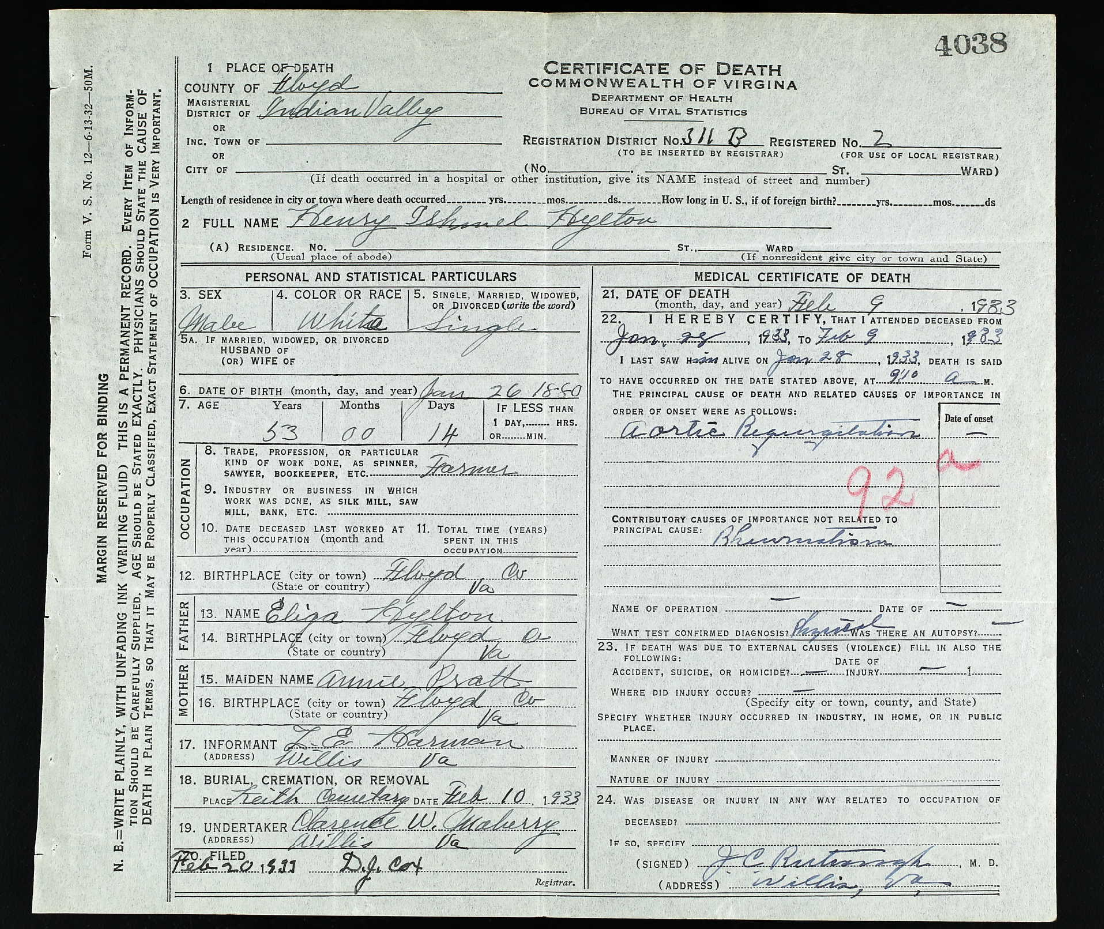 4038
Form V. S. No. 12—6-13-32—50M.
MARGIN RESERVED FOR BINDING
N. B.—WRITE PLAINLY, WITH UNFADING INK (WRITING FLUID) THIS IS A PERMANENT RECORD. EVERY ITEM OF INFORM-
TION SHOULD BE CAREFULLY SUPPLIED. AGE SHOULD BE STATED EXACTLY. PHYSICIANS SHOULD STATE THE CAUSE OF
DEATH IN PLAIN TERMS, SO THAT IT MAY BE PROPERLY CLASSIFIED, EXACT STATEMENT OF OCCUPATION IS VERY IMPORTANT.
1 PLACE OF DEATH
COUNTY OF Floyd
MAGISTERIAL
DISTRICT OF Indian Valley
OR
INC. TOWN OF
OR
CITY OF
CERTIFICATE OF DEATH
COMMONWEALTH OF VIRGINIA
DEPARTMENT OF HEALTH
BUREAU OF VITAL STATISTICS
REGISTRATION DISTRICT No. 311 B REGISTERED No. 2
(TO BE INSERTED BY REGISTRAR) (FOR USE OF LOCAL REGISTRAR)
(No. ST. WARD)
(If death occurred in a hospital or other institution, give its NAME instead of street and number)
Length of residence in city or town where death occurred yrs. mos. ds. How long in U. S., if of foreign birth? yrs. mos. ds
2 FULL NAME Henry Ishmel Hylton
(A) RESIDENCE. No. ST., WARD
(Usual place of abode) (If nonresident give city or town and State)
PERSONAL AND STATISTICAL PARTICULARS
3. SEX 4. COLOR OR RACE 5. SINGLE, MARRIED, WIDOWED,
OR DIVORCED (write the word)
Male White Single
5A. IF MARRIED, WIDOWED, OR DIVORCED
HUSBAND OF
(OR) WIFE OF
6. DATE OF BIRTH (month, day, and year) Jan 26 1880
7. AGE Years Months Days IF LESS THAN
1 DAY, HRS.
OR MIN.
53 00 14
OCCUPATION
8. TRADE, PROFESSION, OR PARTICULAR
KIND OF WORK DONE, AS SPINNER,
SAWYER, BOOKKEEPER, ETC. Farmer
9. INDUSTRY OR BUSINESS IN WHICH
WORK WAS DONE, AS SILK MILL, SAW
MILL, BANK, ETC.
10. DATE DECEASED LAST WORKED AT 11. TOTAL TIME (YEARS)
THIS OCCUPATION (month and SPENT IN THIS
year) OCCUPATION
12. BIRTHPLACE (city or town) Floyd Co
(State or country) Va
FATHER
13. NAME Eliza Hylton
14. BIRTHPLACE (city or town) Floyd Co
(State or country) Va
MOTHER
15. MAIDEN NAME Annie Pratt
16. BIRTHPLACE (city or town) Floyd Co
(State or country) Va
17. INFORMANT L E Harman
(ADDRESS) Willis Va
18. BURIAL, CREMATION, OR REMOVAL
PLACE Keith Cemetary DATE Feb 10 1933
19. UNDERTAKER Clarence W. Maberry
(ADDRESS) Willis Va
20. FILED
Feb 20 1933 D.J. Cox
Registrar.
MEDICAL CERTIFICATE OF DEATH
21. DATE OF DEATH
(month, day, and year) Feb 9 1933
22. I HEREBY CERTIFY, THAT I ATTENDED DECEASED FROM
Jan. 28, 1933, TO Feb 9, 1933
I LAST SAW HIM ALIVE ON Jan 28, 1933, DEATH IS SAID
TO HAVE OCCURRED ON THE DATE STATED ABOVE, AT 910 a M.
THE PRINCIPAL CAUSE OF DEATH AND RELATED CAUSES OF IMPORTANCE IN
ORDER OF ONSET WERE AS FOLLOWS: Date of onset
Aortic Regurgitation —
92 a
CONTRIBUTORY CAUSES OF IMPORTANCE NOT RELATED TO
PRINCIPAL CAUSE: Rheumatism
NAME OF OPERATION — DATE OF —
WHAT TEST CONFIRMED DIAGNOSIS? Physical WAS THERE AN AUTOPSY? —
23. IF DEATH WAS DUE TO EXTERNAL CAUSES (VIOLENCE) FILL IN ALSO THE
FOLLOWING: DATE OF
ACCIDENT, SUICIDE, OR HOMICIDE? — INJURY — 1
WHERE DID INJURY OCCUR? —
(Specify city or town, county, and State)
SPECIFY WHETHER INJURY OCCURRED IN INDUSTRY, IN HOME, OR IN PUBLIC
PLACE.
MANNER OF INJURY
NATURE OF INJURY
24. WAS DISEASE OR INJURY IN ANY WAY RELATED TO OCCUPATION OF
DECEASED?
IF SO, SPECIFY
(SIGNED) J C , M. D.
(ADDRESS) Willis, Va